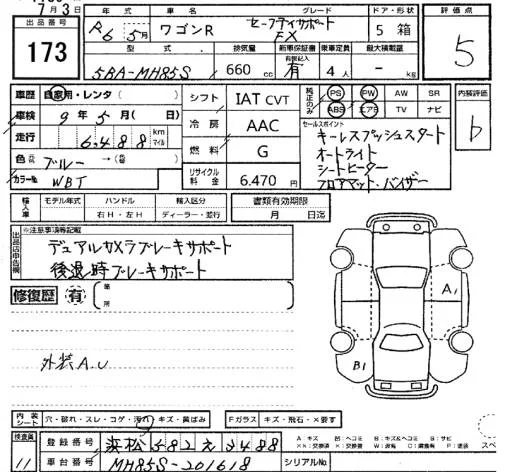 7月3日
出品番号 173
年式 R6 5月
車名 ワゴンR
グレード セーフティサポート FX
ドア・形状 5 箱
評価点 5
型式 5BA-MH85S
排気量 660 cc
新車保証書 有 記入
乗車定員 4人
最大積載量 - kg
車歴 自家用・レンタ( )
車検 9年5月( 日)
走行 6,488 km マイル
色 ブルー →( 色)
カラーNo. WBT
シフト IAT CVT
冷房 AAC
燃料 G
リサイクル料金 6,470円
純正のみ PS PW AW SR
ABS エアB TV ナビ
内装評価 b
セールスポイント
キーレスプッシュスタート
オートライト
シートヒーター
フロアマット、バイザー
輸入車 モデル年式 ハンドル 輸入区分
右H・左H ディーラー・並行
書類有効期限
月 日迄
出品店申告欄 ※注意事項等記載
デュアルカメラブレーキサポート
後退時ブレーキサポート
修復歴 有 箇所
A1
B1
外装A.U
内装シート 穴・破れ・スレ・コゲ・汚れ・キズ・黄ばみ
Fガラス キズ・飛石・×要す
検査員 11
登録番号 浜松 582 え 3488
車台番号 MH85S-201618
シリアルNo.
A:キズ B:ヘコミ B:キズ&ヘコミ S:サビ